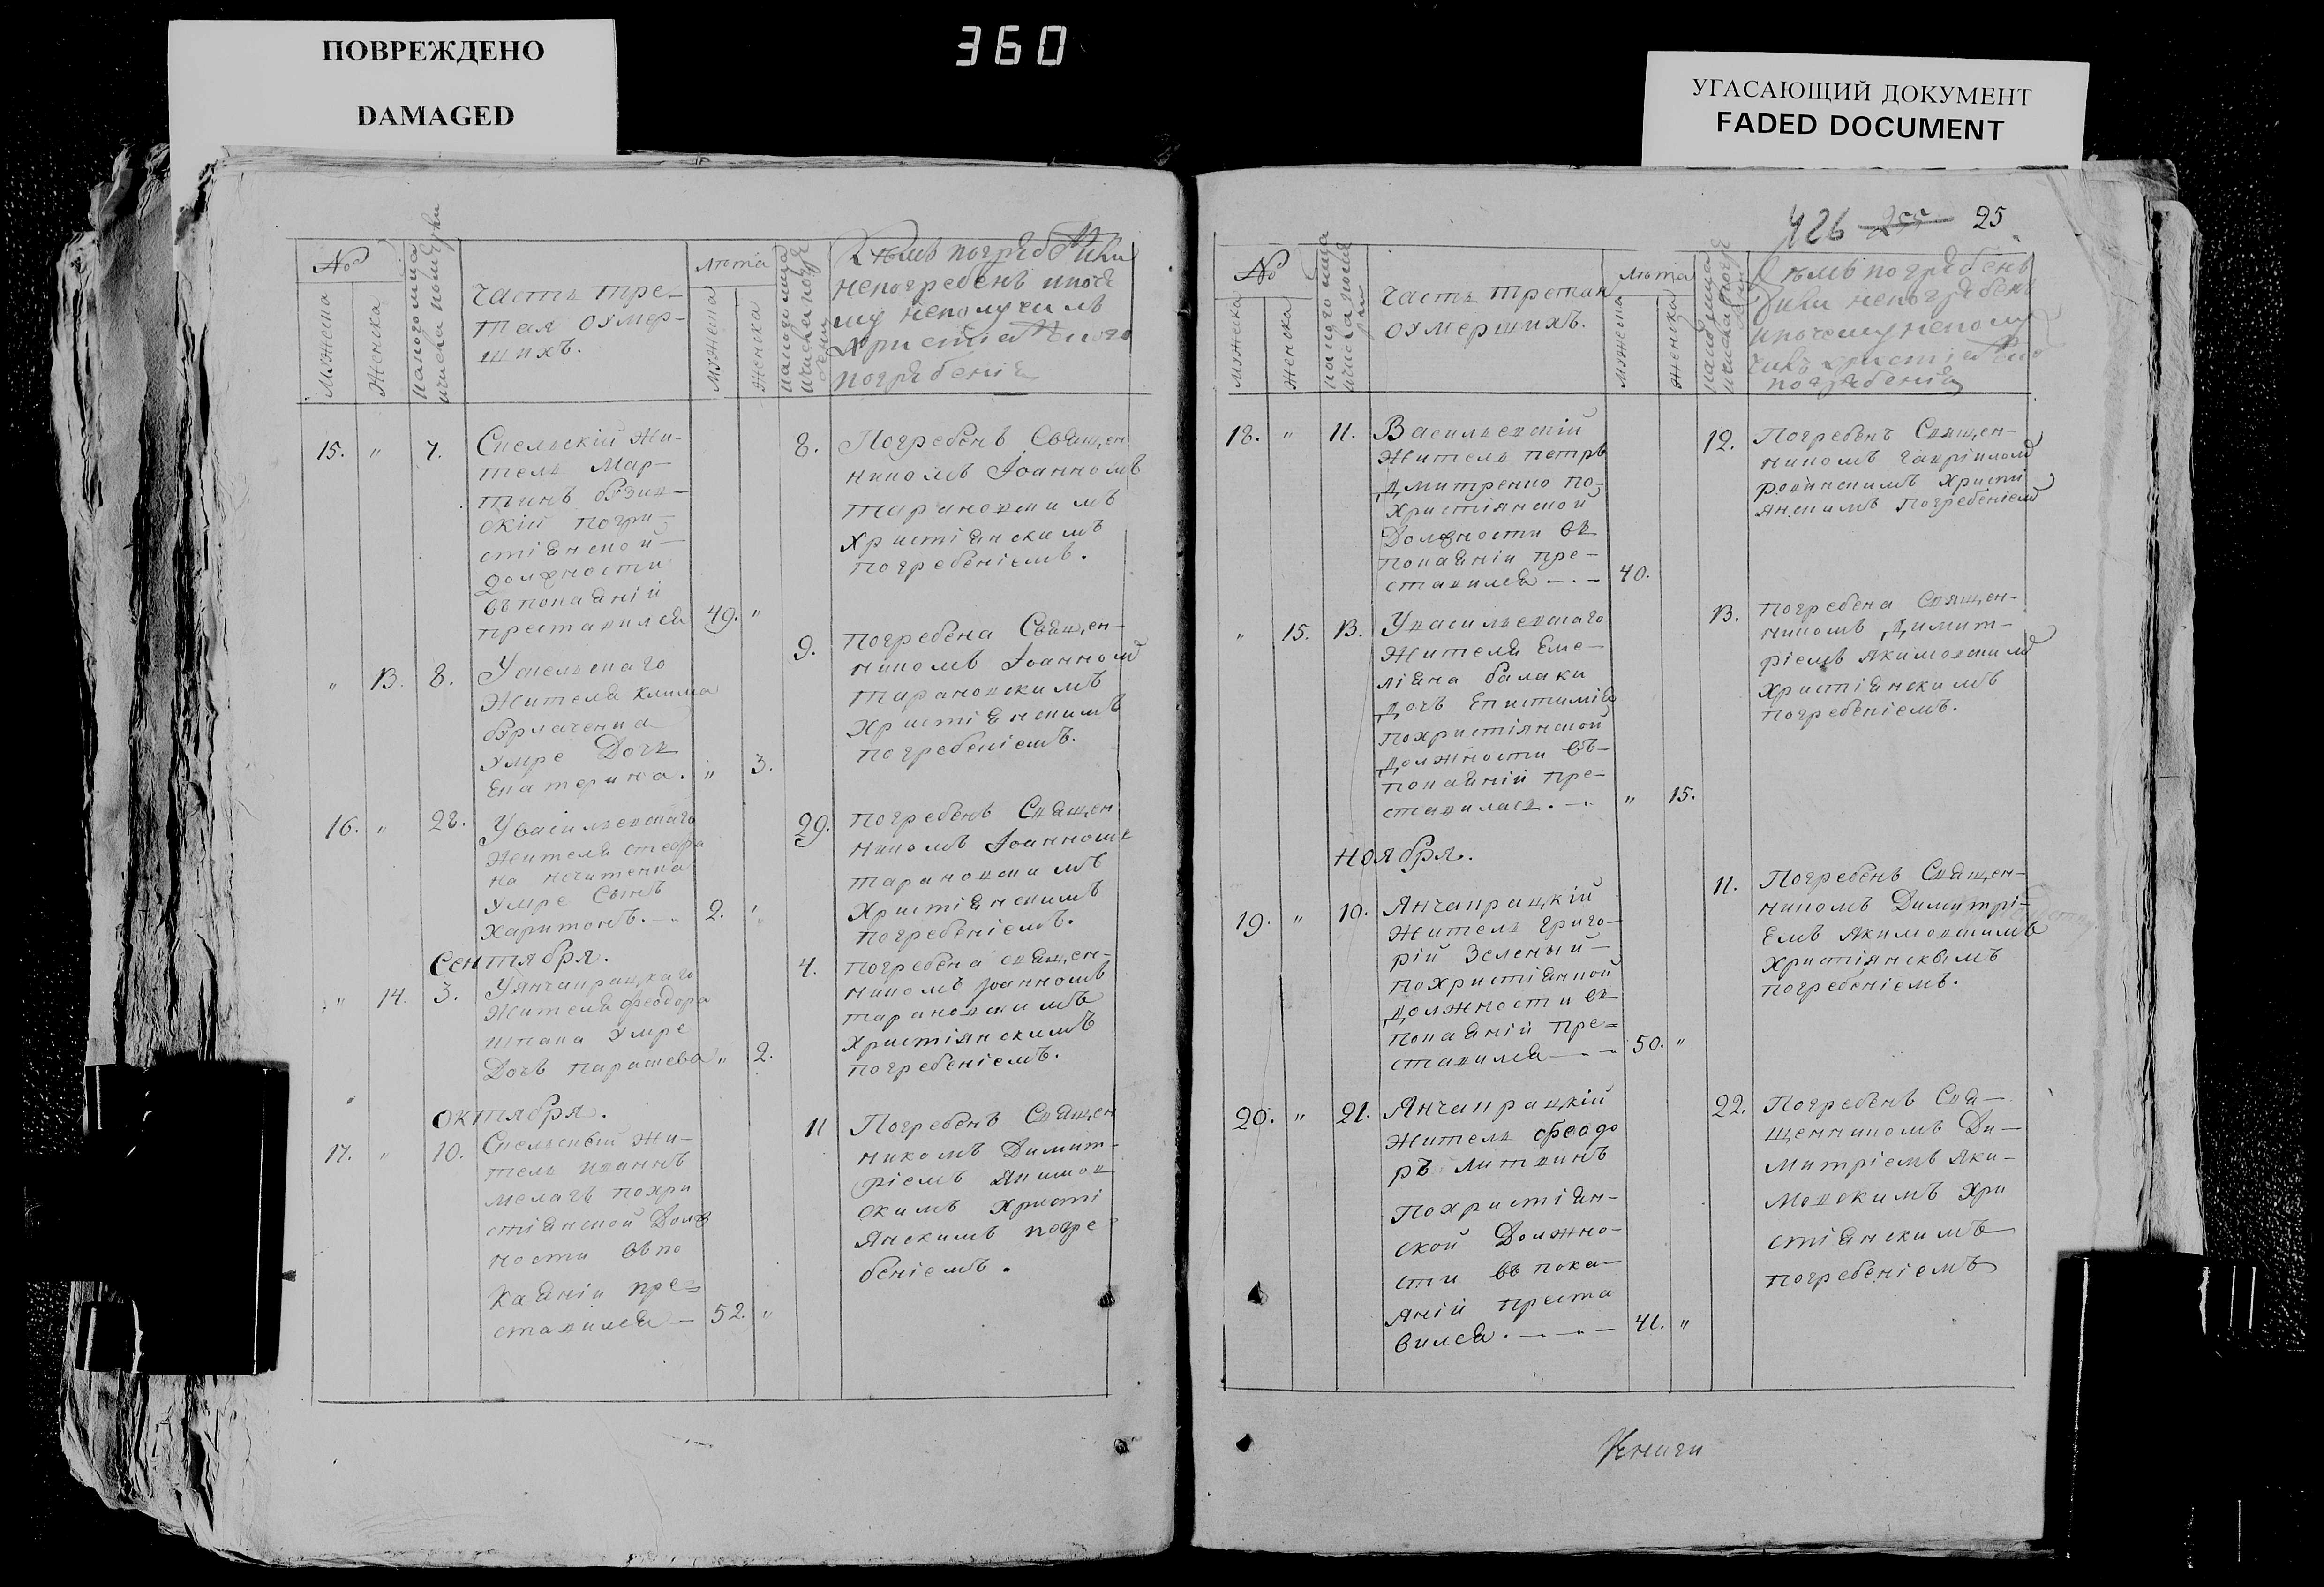 ПОВРЕЖДЕНО
DAMAGED
360
УГАСАЮЩИЙ ДОКУМЕНТ
FADED DOCUMENT
№
мужеска
Женска
Часть тре-
тая оумер-
шихъ.
лѣта
мужеска
женска
Кѣмъ погребенъ или
непогребенъ ипоче
му неполучилъ
христіанского
погребенія
15. " 7.
Спельскій жи-
тель Мар-
тинъ
скій похри-
стіанской
должности
въпокааній
преставился 49. "
8.
Погребенъ Священ
никомъ Іоанномъ
Тарановскимъ
Христіанскимъ
погребеніемъ.
" 13. 8.
Успельскаго
Жителя клима
бурлаченка
умре Дочь
Екатерина. " 3.
9.
погребена Священ-
никомъ Іоанномъ
тарановскимъ
Христіанскимъ
погребеніемъ.
16. " 28.
Увасильевскаго
жителя стефа
на
умре Сынъ
Харитонъ. 2. "
29.
погребенъ Священ
никомъ Іоанномъ
тарановскимъ
Христіанскимъ
погребеніемъ.
Сентября.
" 14. 3.
Уянчапрацкаго
жителя феодора
шпака умре
Дочь парасцева " 2.
4.
погребена священ-
никомъ Іоанномъ
тарановскимъ
Христіянскимъ
погребеніемъ.
октября.
17. " 10.
Спельскый жи-
тель иваннъ
похри
стіанской Долж
ности въпо
каяніи пре=
ставился — 52. "
11
Погребенъ Священ
никомъ Димит-
ріемъ Якимов
скимъ Христі
Янскимъ погре
беніемъ.
426 25
№
мужеска
женска
Часть третая
оумершихъ.
лѣта
мужеска
женска
Кѣмъ погребенъ
или непогребенъ
ипочему неполу
чилъ христіанско
погребенія
18. " 11.
Васильевскій
житель петръ
Дмитренко по-
христіянской
Должности въ
покааніи пре-
ставился — . — 40.
12.
Погребенъ Священ-
никомъ Гавріиломъ
Христі
янскимъ Погребеніемъ
" 15. 13.
Увасильевскаго
жителя Еме-
ліана балаки
Дочъ Епистимія
похристіянской
Должности въ-
покааній пре-
ставилась. — " 15.
13.
погребена Священ-
никомъ Димит-
ріемъ якимовскимъ
христіанскимъ
погребеніемъ.
ноября.
19. " 10.
Янчапрацкій
житель григо-
рій Зеленый-
похристіанкой
должности въ
покааній пре=
ставился — — 50. "
11.
Погребенъ Священ-
никомъ Димитрі-
Емъ якимовскимъ
христіянскымъ
погребеніемъ.
20. " 21.
Янчапрацкій
житель феодо
ръ литвинъ
похристіан-
ской Должно-
сти въпока-
яній преста
вился. — — — 41. "
22.
погребенъ Свя-
щенникомъ Ди-
митріемъ Яки-
мовскимъ Хри
стіанскимъ
погребеніемъ
Книги